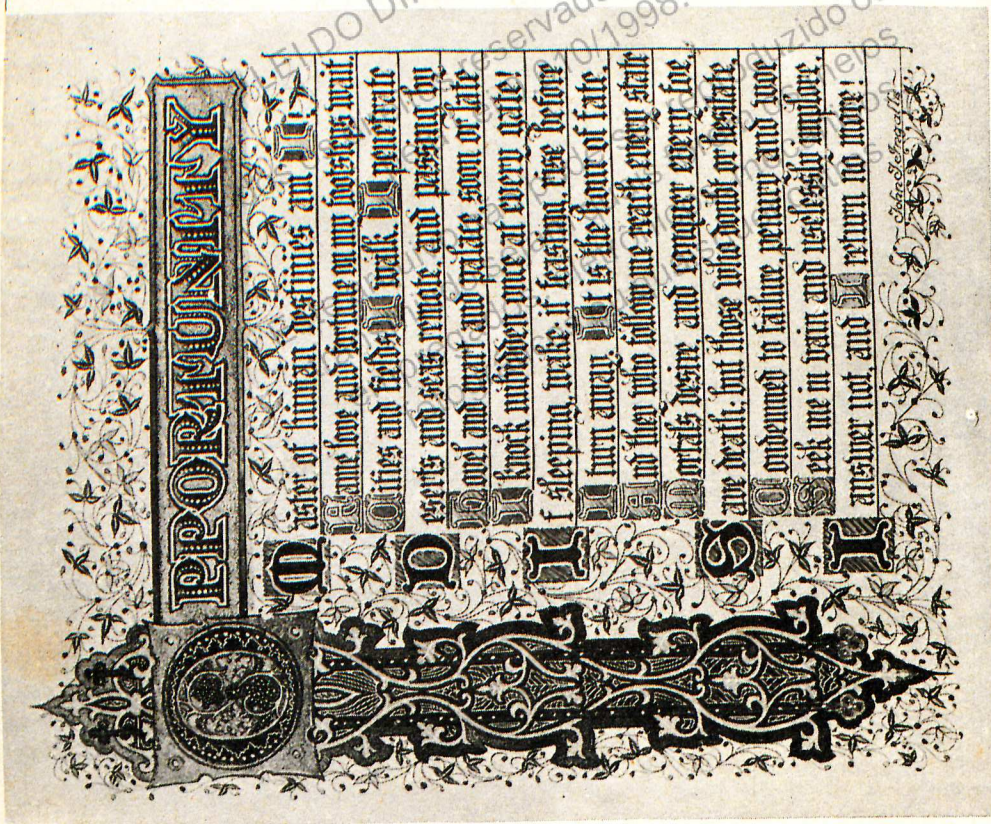 OPPORTUNITY
Master of human destinies am I
Fame love and fortune on my footsteps wait
Cities and fields I walk I penetrate
Deserts and seas remote, and passing by
Hovel and mart and palace, soon or late
I knock unbidden once at every gate!
If sleeping, wake: if feasting rise before
I turn away. It is the hour of fate.
And they who follow me reach every state
Mortals desire, and conquer every foe,
Save death; but those who doubt or hesitate,
Condemned to failure penury and woe
Seek me in vain and uselessly implore.
I answer not, and I return no more!
John J Ingalls
reservado
610/1998.
meios